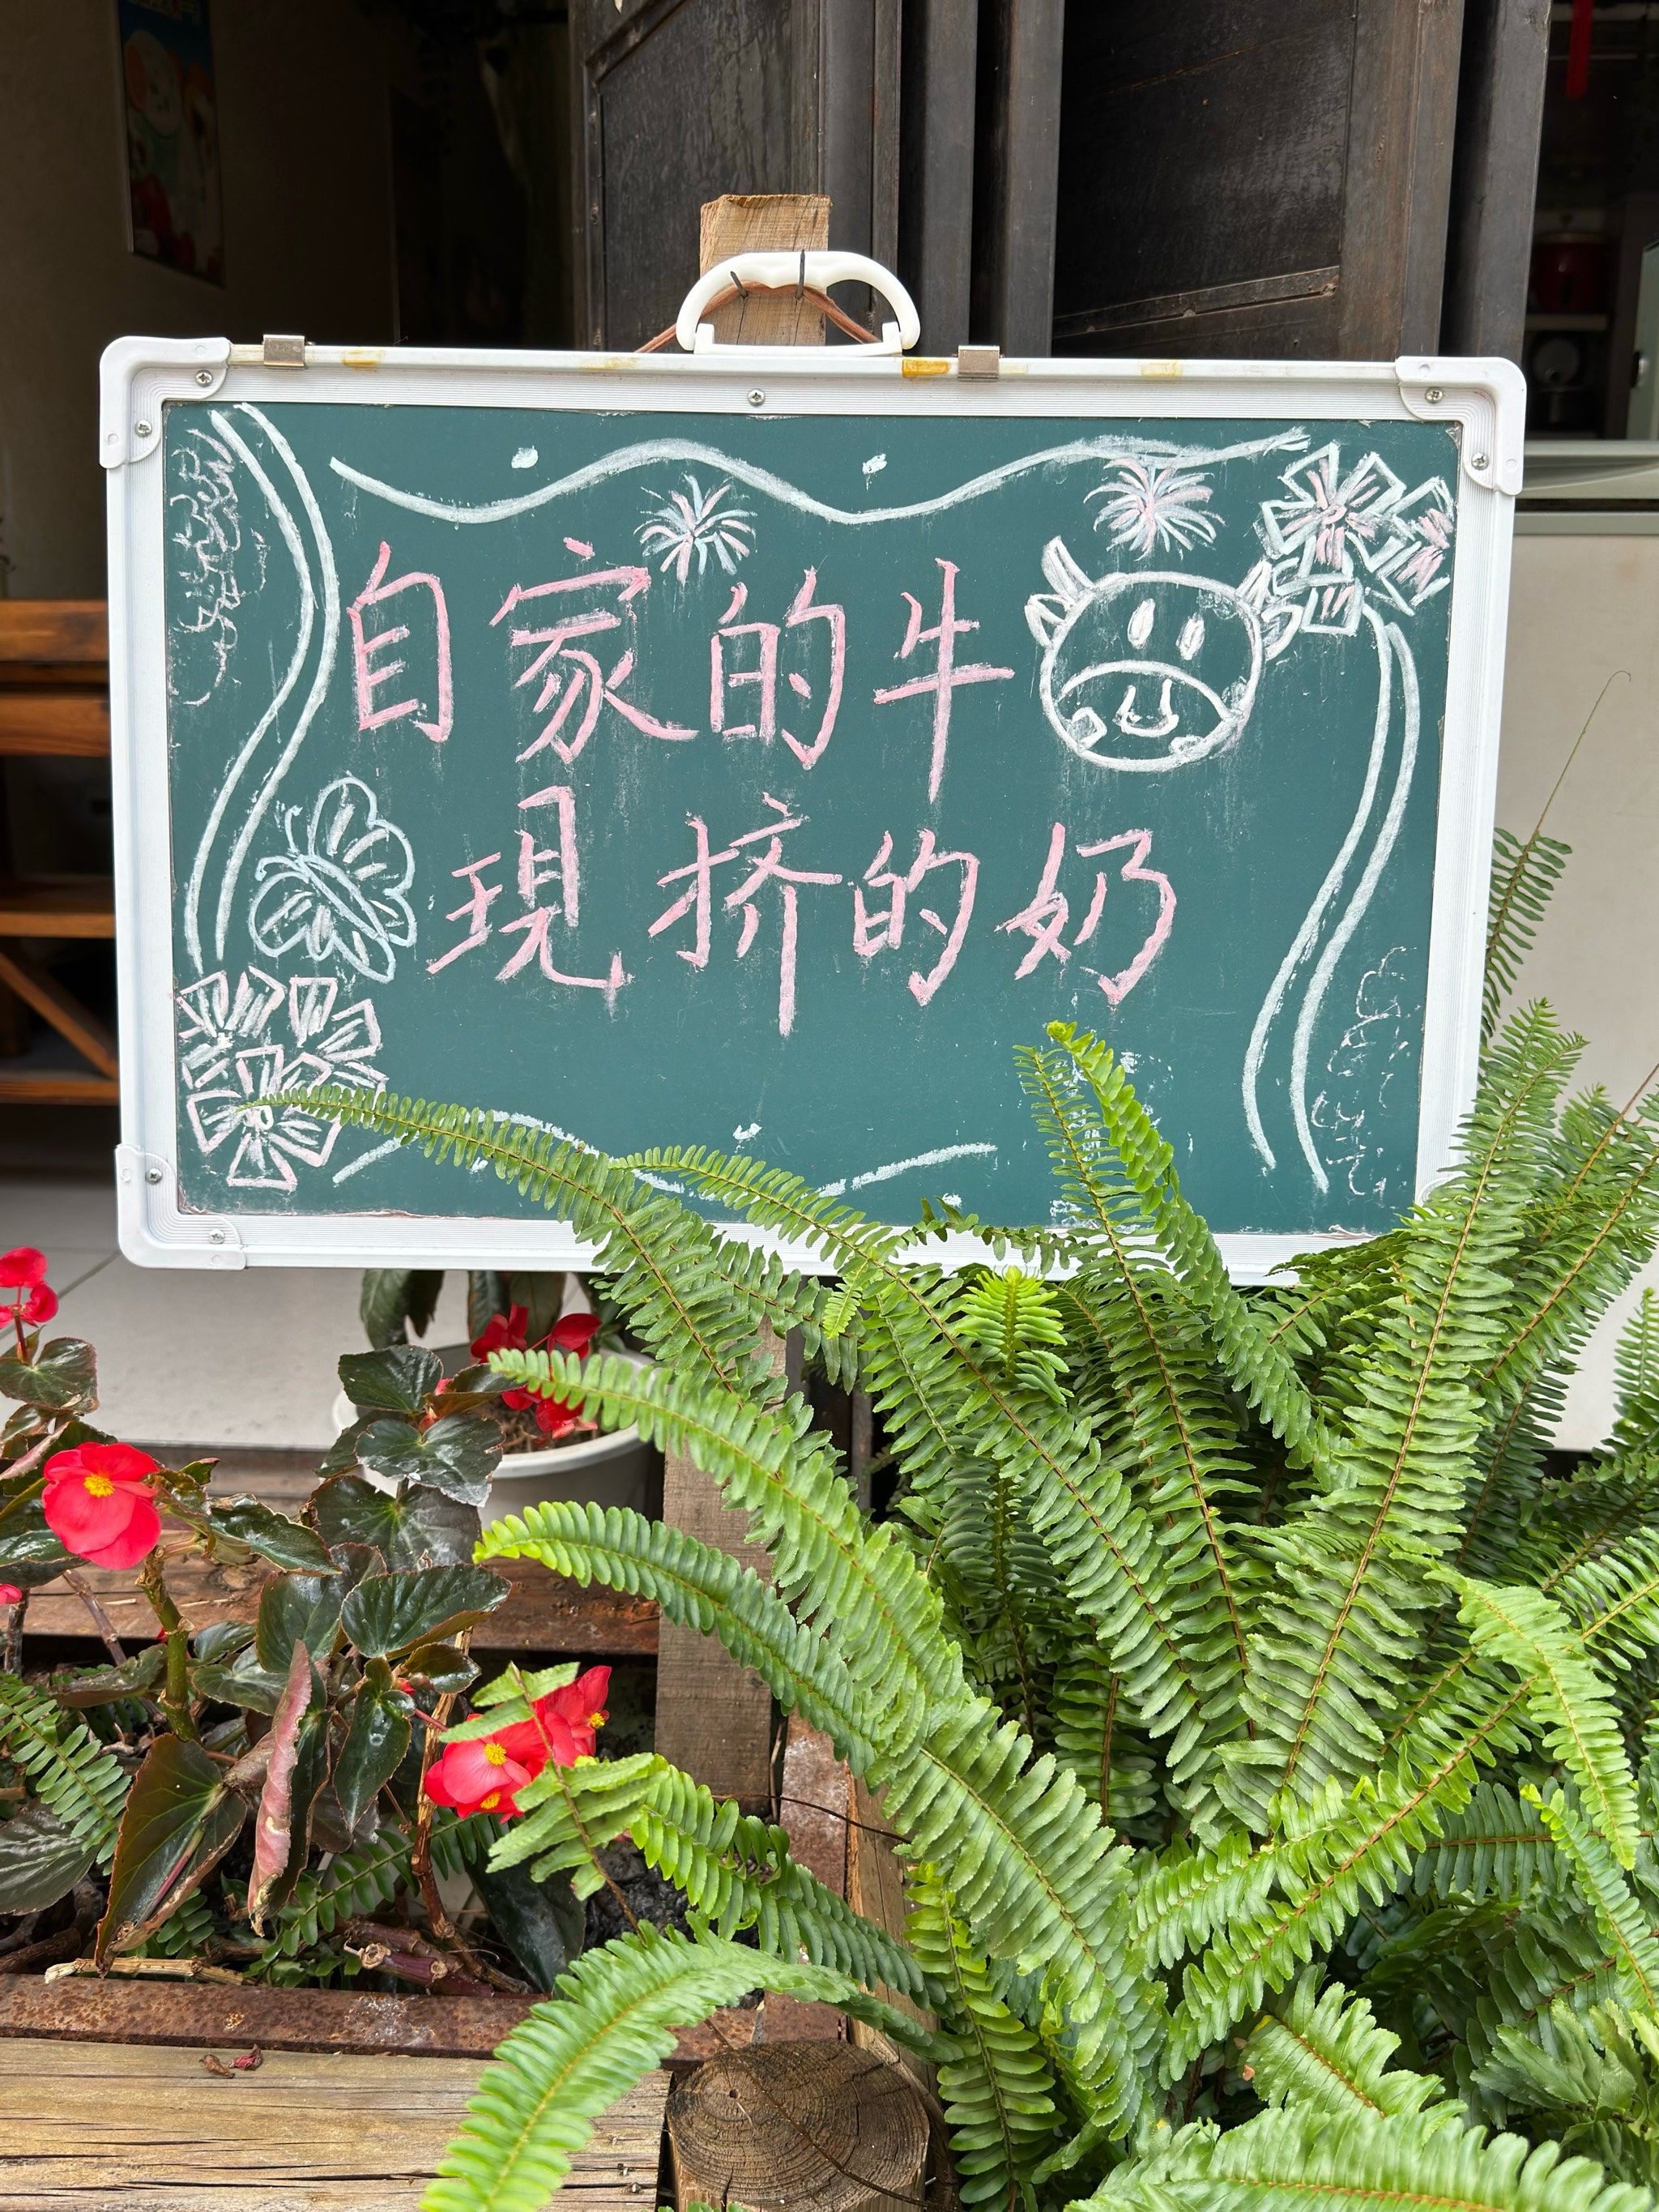 自家的牛
現挤的奶